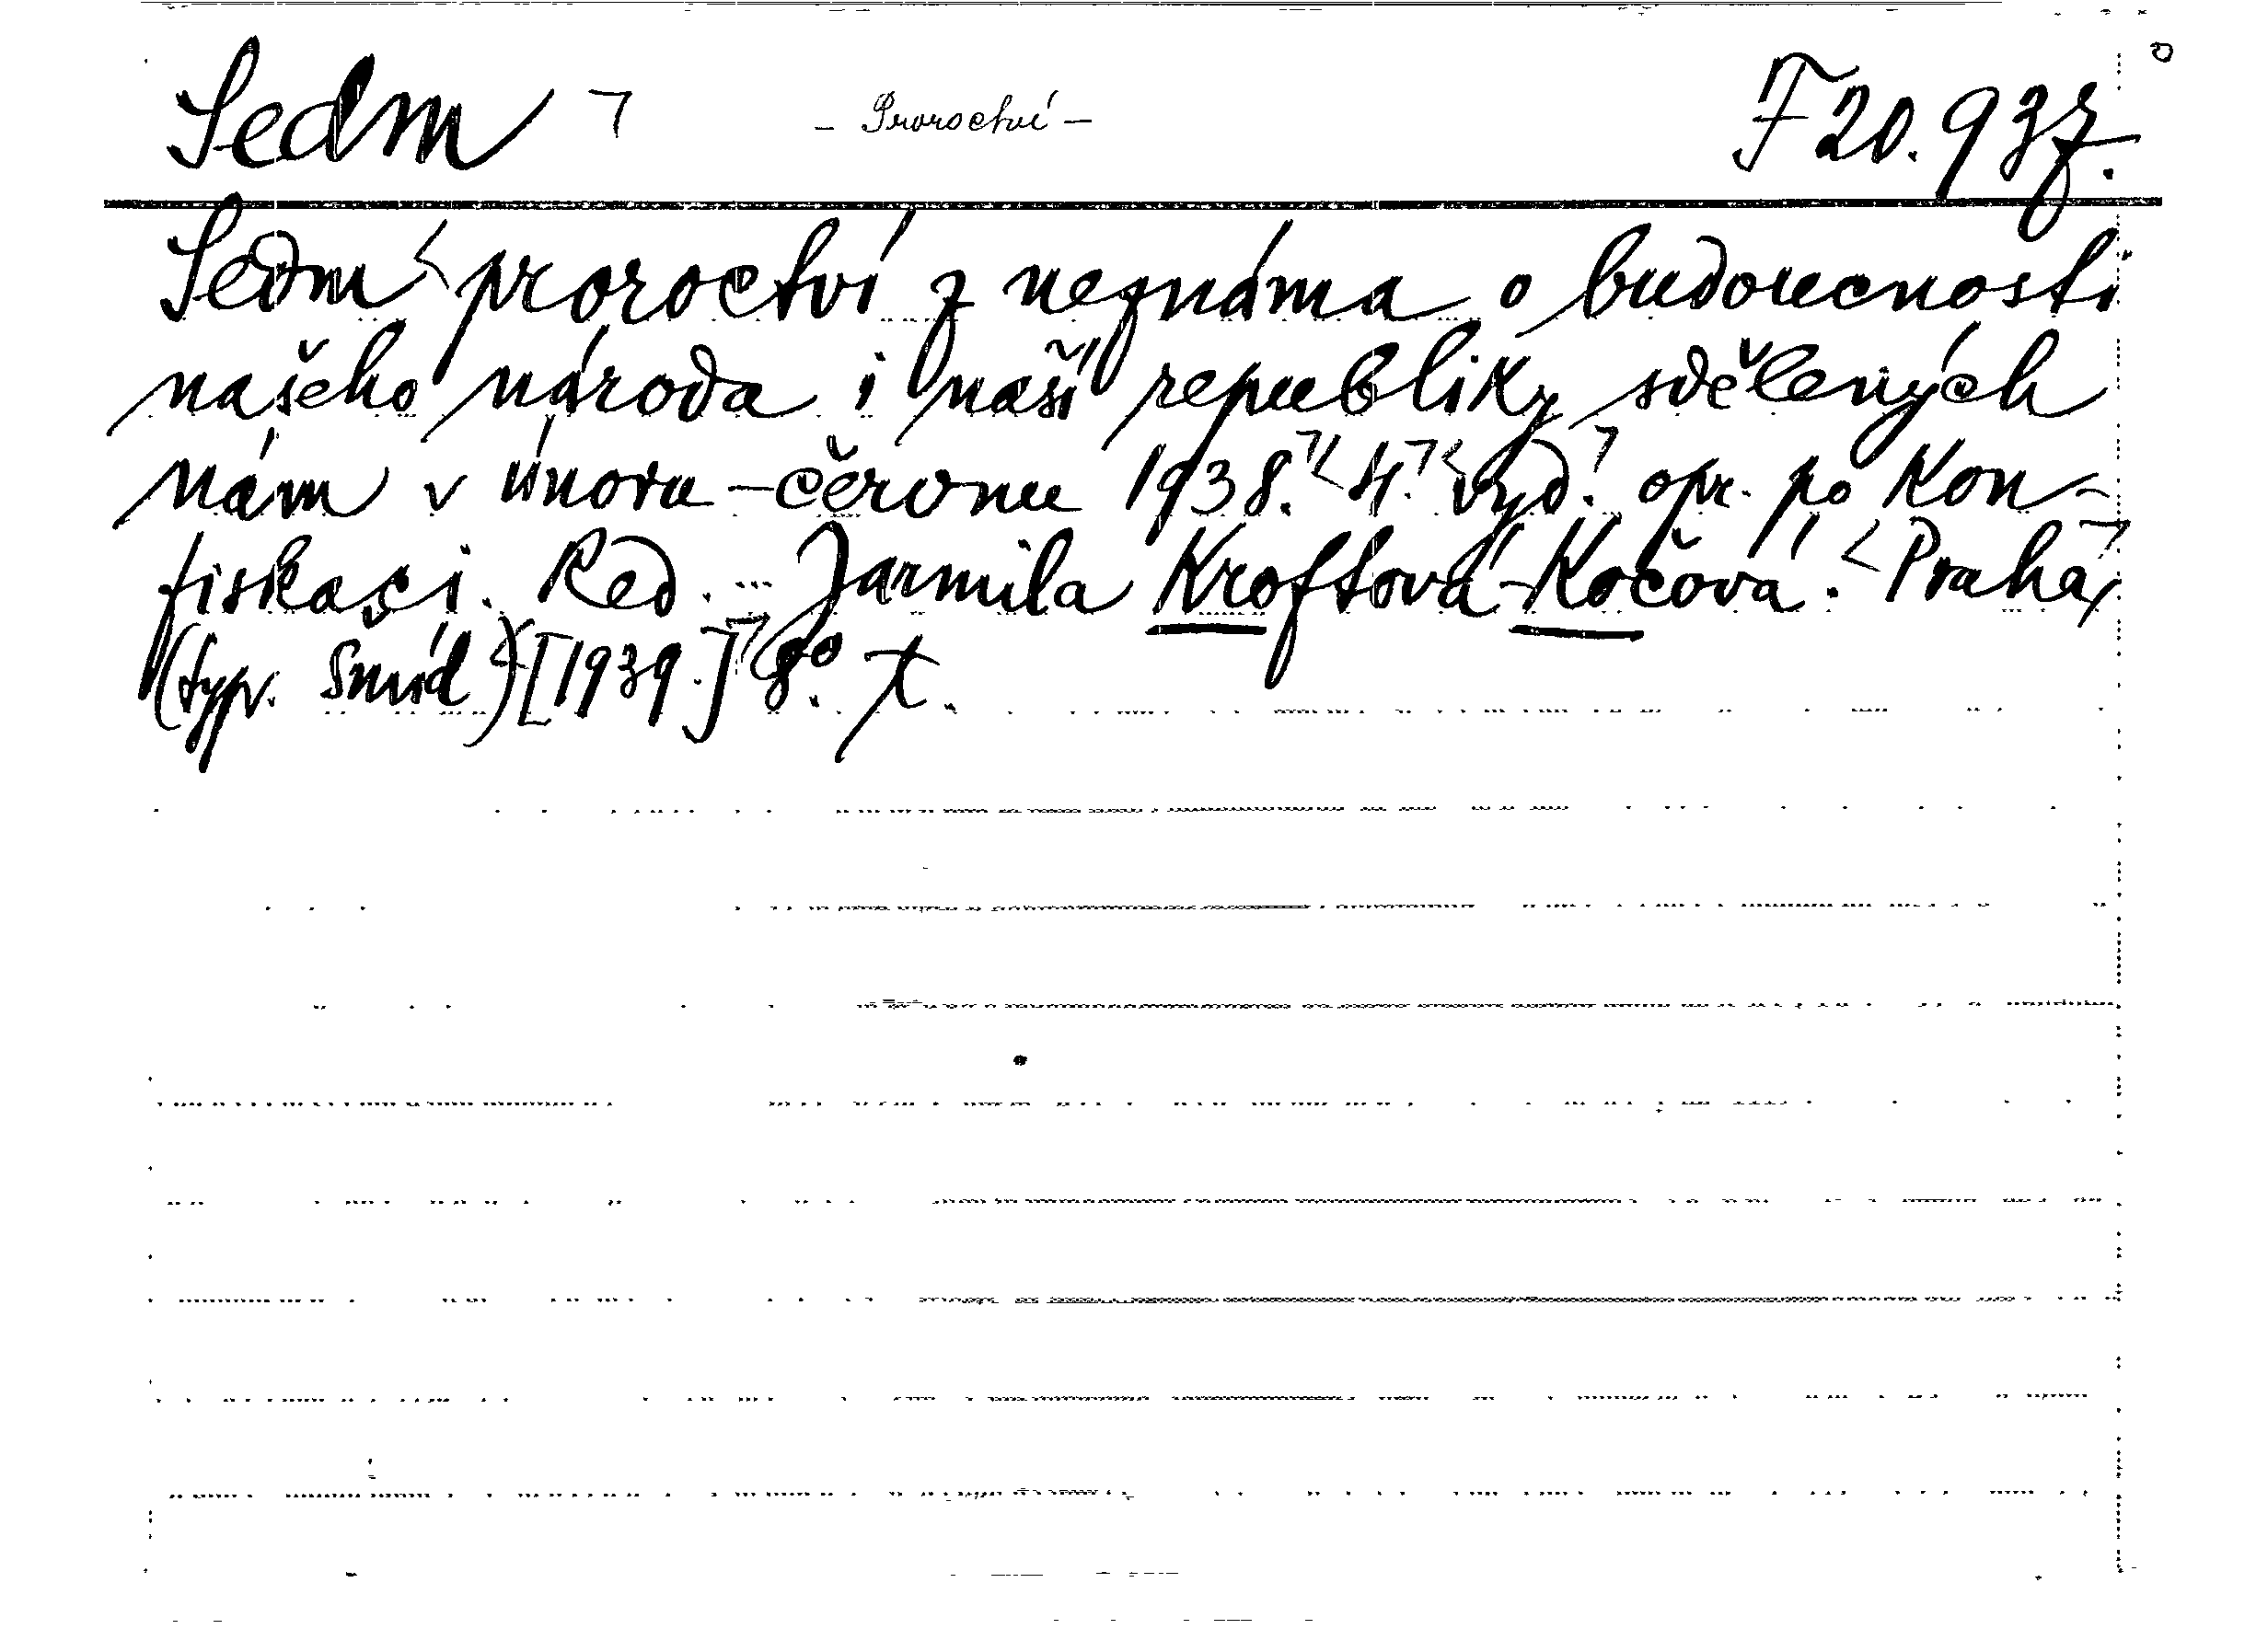 Sedm ꓶ - Proroctví - F 20.937.
Sedm proroctví z neznáma o budoucnosti
našeho národa i naší republiky sdělených
nám v únoru - červnu 1938. 4. vyd. opr. po kon-
fiskaci. Red. ... Jarmila Kroftová-Kočová. Praha,
(typ. Šmíd) [1939.] 8° t.